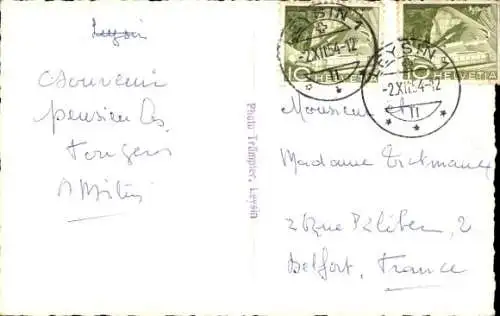 Leysin
Souvenir
pension les
Fougères
LEYSIN 1
-2.XII.54-12
10 HELVETIA
LEYSIN 1
-2.XII.54-12
10 HELVETIA
Photo Trümpler, Leysin
Monsieur et
Madame
2 Rue 2
Belfort, France